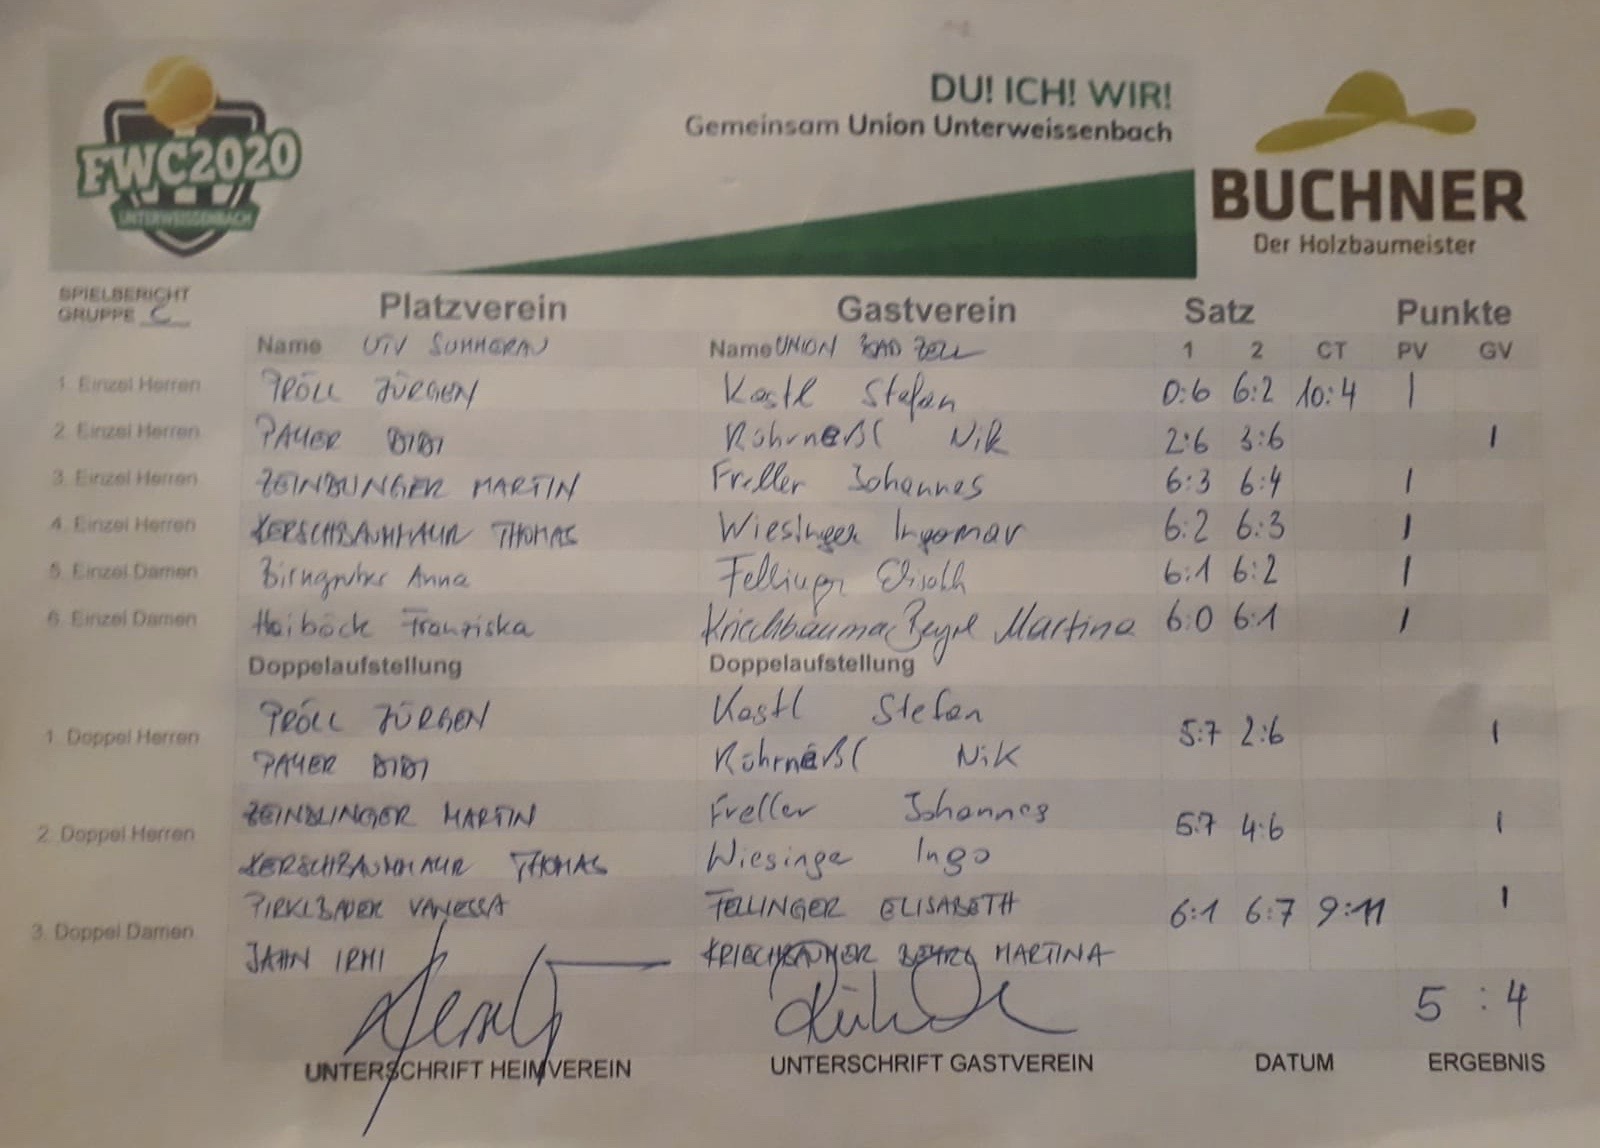 FWC2020
UNTERWEISSENBACH
DU! ICH! WIR!
Gemeinsam Union Unterweissenbach
BUCHNER
Der Holzbaumeister
SPIELBERICHT
GRUPPE C
Platzverein Gastverein Satz Punkte
Name UTV SUMMERAU Name UNION BAD ZELL 1 2 CT PV GV
1. Einzel Herren PRÖLL JÜRGEN Kastl Stefan 0:6 6:2 10:4 1
2. Einzel Herren PAYER DIDI Rohrneßl Nik 2:6 3:6 1
3. Einzel Herren ZEINDLINGER MARTIN Freller Johannes 6:3 6:4 1
4. Einzel Herren KERSCHBAUMMAYR THOMAS Wiesinger Ingomar 6:2 6:3 1
5. Einzel Damen Birngruber Anna Fellinger 6:1 6:2 1
6. Einzel Damen Haiböck Franziska Martina 6:0 6:1 1
Doppelaufstellung Doppelaufstellung
PRÖLL JÜRGEN Kastl Stefan
1. Doppel Herren 5:7 2:6 1
PAYER DIDI Rohrneßl Nik
ZEINDLINGER MARTIN Freller Johannes
2. Doppel Herren 5:7 4:6 1
KERSCHBAUMMAYR THOMAS Wiesinge Ingo
PIRKLBAUER VANESSA FELLINGER ELISABETH 6:1 6:7 9:11 1
3. Doppel Damen
JAHN IRMI MARTINA
5 : 4
UNTERSCHRIFT HEIMVEREIN UNTERSCHRIFT GASTVEREIN DATUM ERGEBNIS